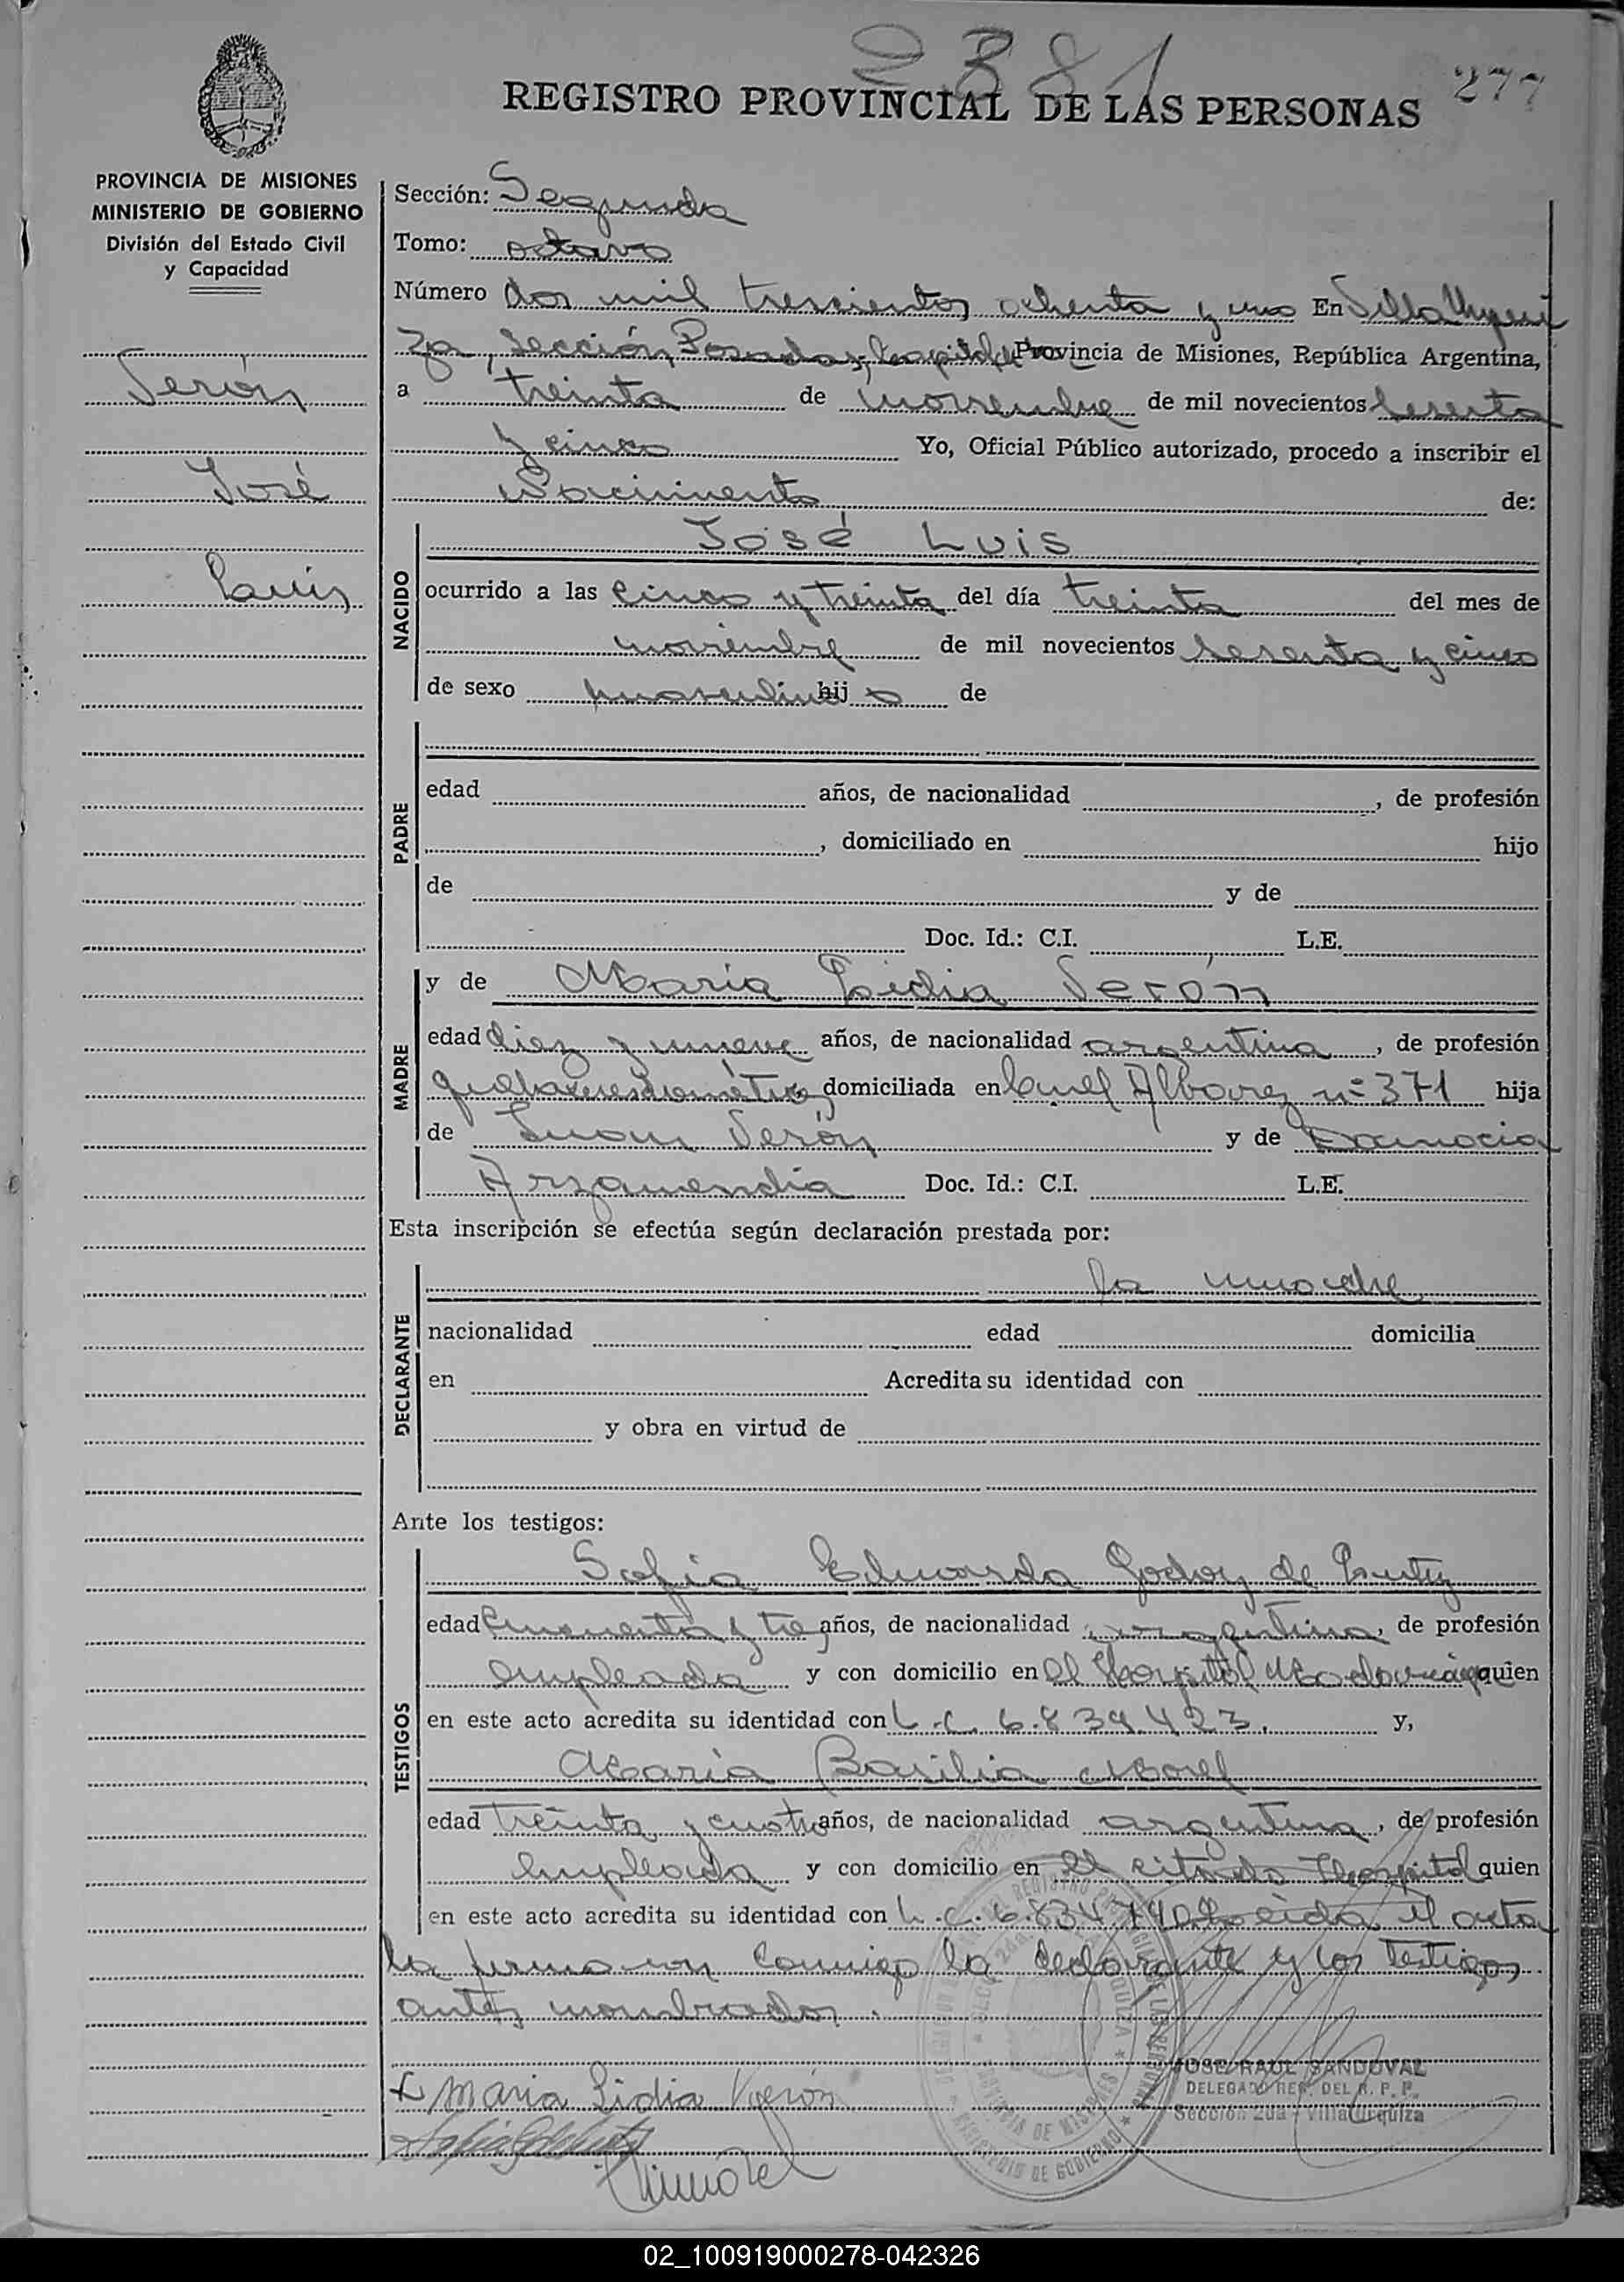 2381
277
REGISTRO PROVINCIAL DE LAS PERSONAS
PROVINCIA DE MISIONES
MINISTERIO DE GOBIERNO
División del Estado Civil
y Capacidad
Verón
José
Luis
Sección: Segunda
Tomo: octavo
Número dos mil trescientos ochenta y uno En Villa Urqui
za, Sección, Posadas, Capital, Provincia de Misiones, República Argentina,
a treinta de noviembre de mil novecientos sesenta
y cinco Yo, Oficial Público autorizado, procedo a inscribir el
Nacimiento de:
NACIDO
José Luis
ocurrido a las cinco y treinta del día treinta del mes de
noviembre de mil novecientos sesenta y cinco
de sexo masculino hijo de
PADRE
edad años, de nacionalidad , de profesión
, domiciliado en hijo
de y de
Doc. Id.: C.I. L.E.
MADRE
y de María Lidia Verón
edad diez y nueve años, de nacionalidad argentina, de profesión
quehaceres domésticos domiciliada en Cnel Alvarez nº 371 hija
de Juan Verón y de
Arzamendia Doc. Id.: C.I. L.E.
Esta inscripción se efectúa según declaración prestada por:
DECLARANTE
la madre
nacionalidad edad domicilia
en Acredita su identidad con
y obra en virtud de
Ante los testigos:
TESTIGOS
Sofia Eduarda Godoy de
edad cincuenta y tres años, de nacionalidad argentina, de profesión
empleada y con domicilio en el Hospital Madariaga quien
en este acto acredita su identidad con L.C. 6.839.423. y,
María Basilia Morel
edad treinta y cuatro años, de nacionalidad argentina, de profesión
empleada y con domicilio en el citado Hospital quien
en este acto acredita su identidad con L.C. 6.834.740 Leída el acta
la firman conmigo la declarante y los testigos
antes nombrados.
x Maria Lidia Verón
JOSE RAUL SANDOVAL
DELEGADO REG. DEL R. P. P.
Sección 2da - Villa Urquiza
PROVINCIA DE MISIONES
MINISTERIO DE GOBIERNO
02_100919000278-042326